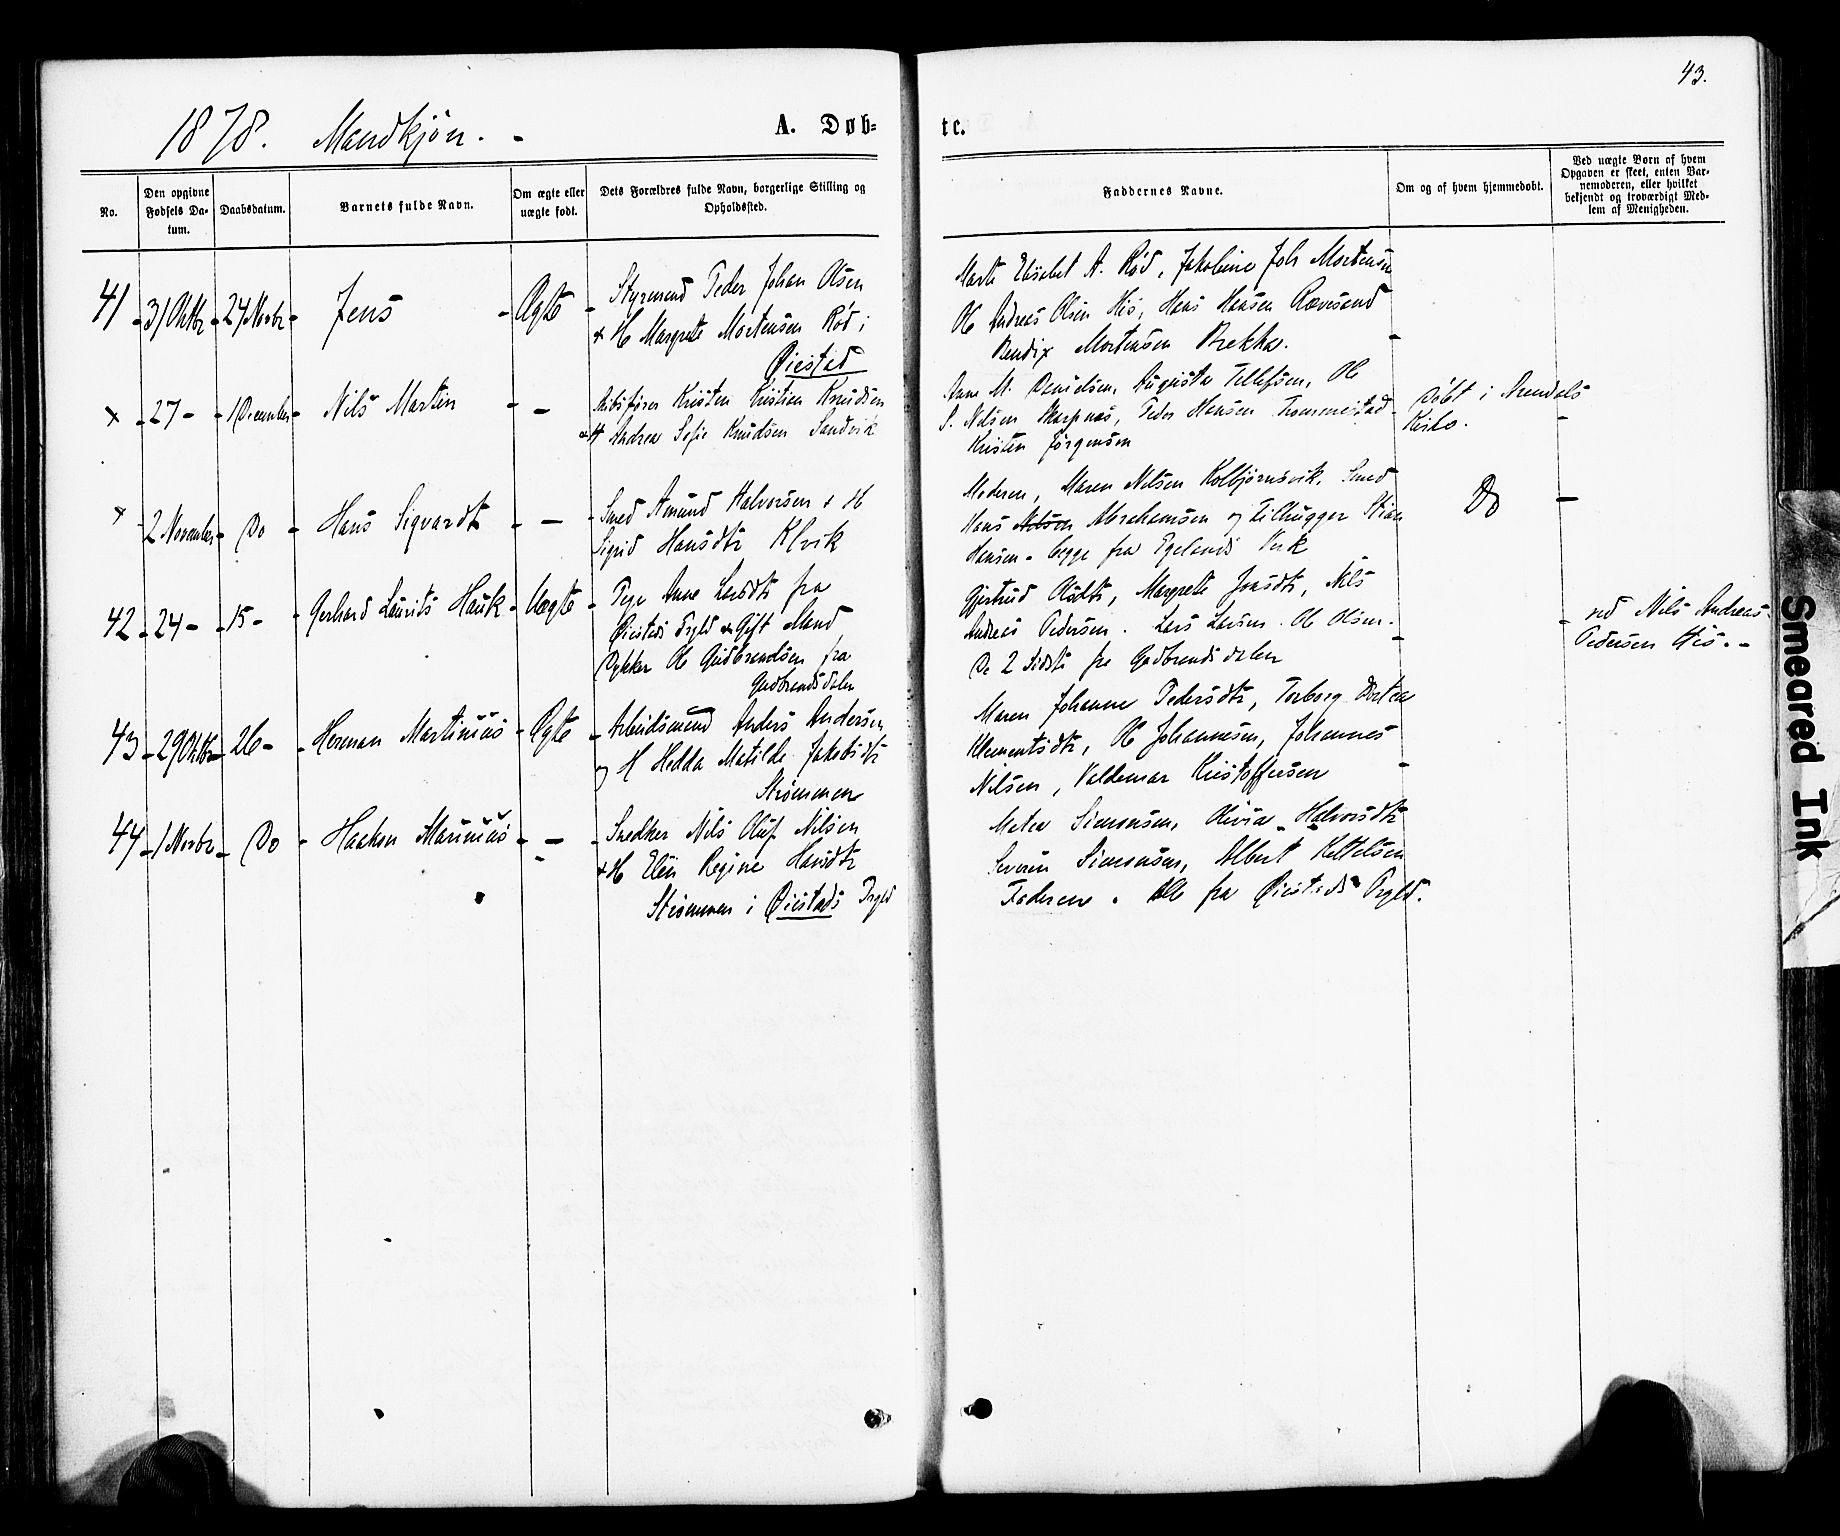 43.
1878. Mandkjøn. -
A. Døb-
te.
No.
Den opgivne Fødsels Da-
tum.
Daabsdatum.
Barnets fulde Navn.
Om ægte eller
uægte født.
Dets Forældres fulde Navn, borgerlige Stilling og
Opholdssted.
Faddernes Navne.
Om og af hvem hjemmedøbt.
Ved uægte Børn af hvem
Opgaven er skeet, enten Bar-
nemoderen, eller hvilket
bekjendt og troværdigt Med-
lem af Menigheden.
41 - 31 Oktbr - 24 Novbr - Jens - Ægte -
Styrmand Peder Johan Olsen
+ H Margrete Mortensen Rød i
Øiestad
Marte Elisebet A. Rød, Jakobine Joh Mortensen
Ole Andreas Olsen His, Hans Hansen Rævesand
Bendix Mortensen Brekka. -
x - 27 - - 1 December - Nils Martin - -
Kristen Kristian Knudsen
+ H Andrea Sofie Knudsen Sandvik
Anne M. Danielsen, Augusta Tellefsen, Ole
S. Nilsen Skarpnes, Peder Hansen Tromøistad -
Kristen Jörgensen
Døbt i Arendals
Kirke. -
x 2 November - Do - Hans Sigvardt - - -
Smed Amund Halvorsen + H
Sigrid Hansdtr Klvik
Moderen, Maren Nilsen Kolbjørnsvik, Smed
Hans Nilsen Abrahamsen og Filhugger Stian
Hansen - begge fra Egelands Verk
Do -
42 - 24 - - 15 - - Gerhard Laurits Hauk - Uægte -
Pige Anne Larsdtr fra
Øiestads Prgld + Gift Mand
Dykker Ole Gudbrandsen fra
Gudbrandsdalen
Gjertrud Olsdtr, Margrete Jonsdtr, Nils
Andreas Pedersen. Lars Larsen. Ole Olsen. -
De 2 sidste fra Gudbrandsdalen
- ved Nils Andreas
Pedersen His. -
43 - 29 Oktbr - 26 - - Herman Martinius - Ægte -
Arbeidsmand Anders Andersen
og H Hedda Matilde Jakobsdtr
Strømmen
Maren Johanne Pedersdtr, Torborg Dortea
Klementsdtr, Ole Johannesen, Johannes
Nilsen, Valdemar Kristoffersen -
44 - 1 Novbr - Do - Haakon Marinius - - -
Snedker Nils Oluf Nilsen
+ H Elen Regine Hansdtr
Strømmen i Øiestads Prgld
Metea Simonsen, Olivia Halvorsdtr
Severin Simonsen, Albert Kettelsen
Faderen. Alle fra Øiestads Prgld.
Smeared Ink